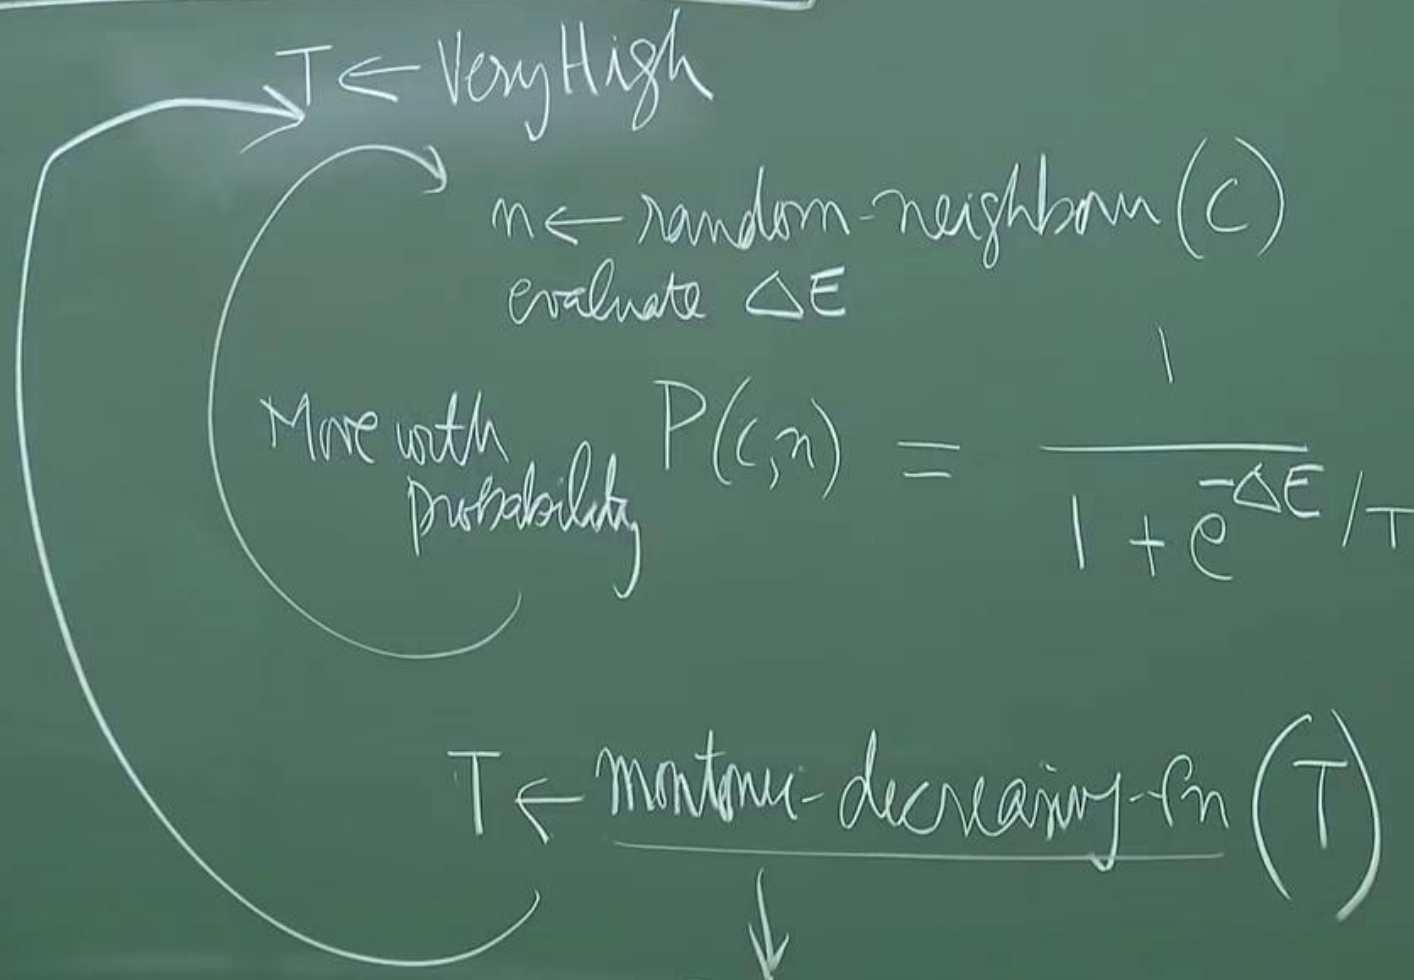 T ← Very High
n ← random-neighbour (C)
evaluate ΔE
Move with probability P(c,n) = 1 / (1 + e^-ΔE/T)
T ← montonic-decreasing-fn (T)